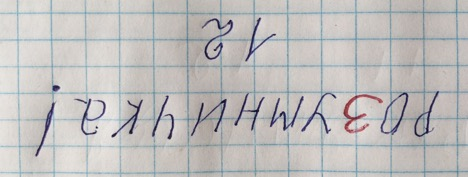 РОЗУМНИЧКА!
12